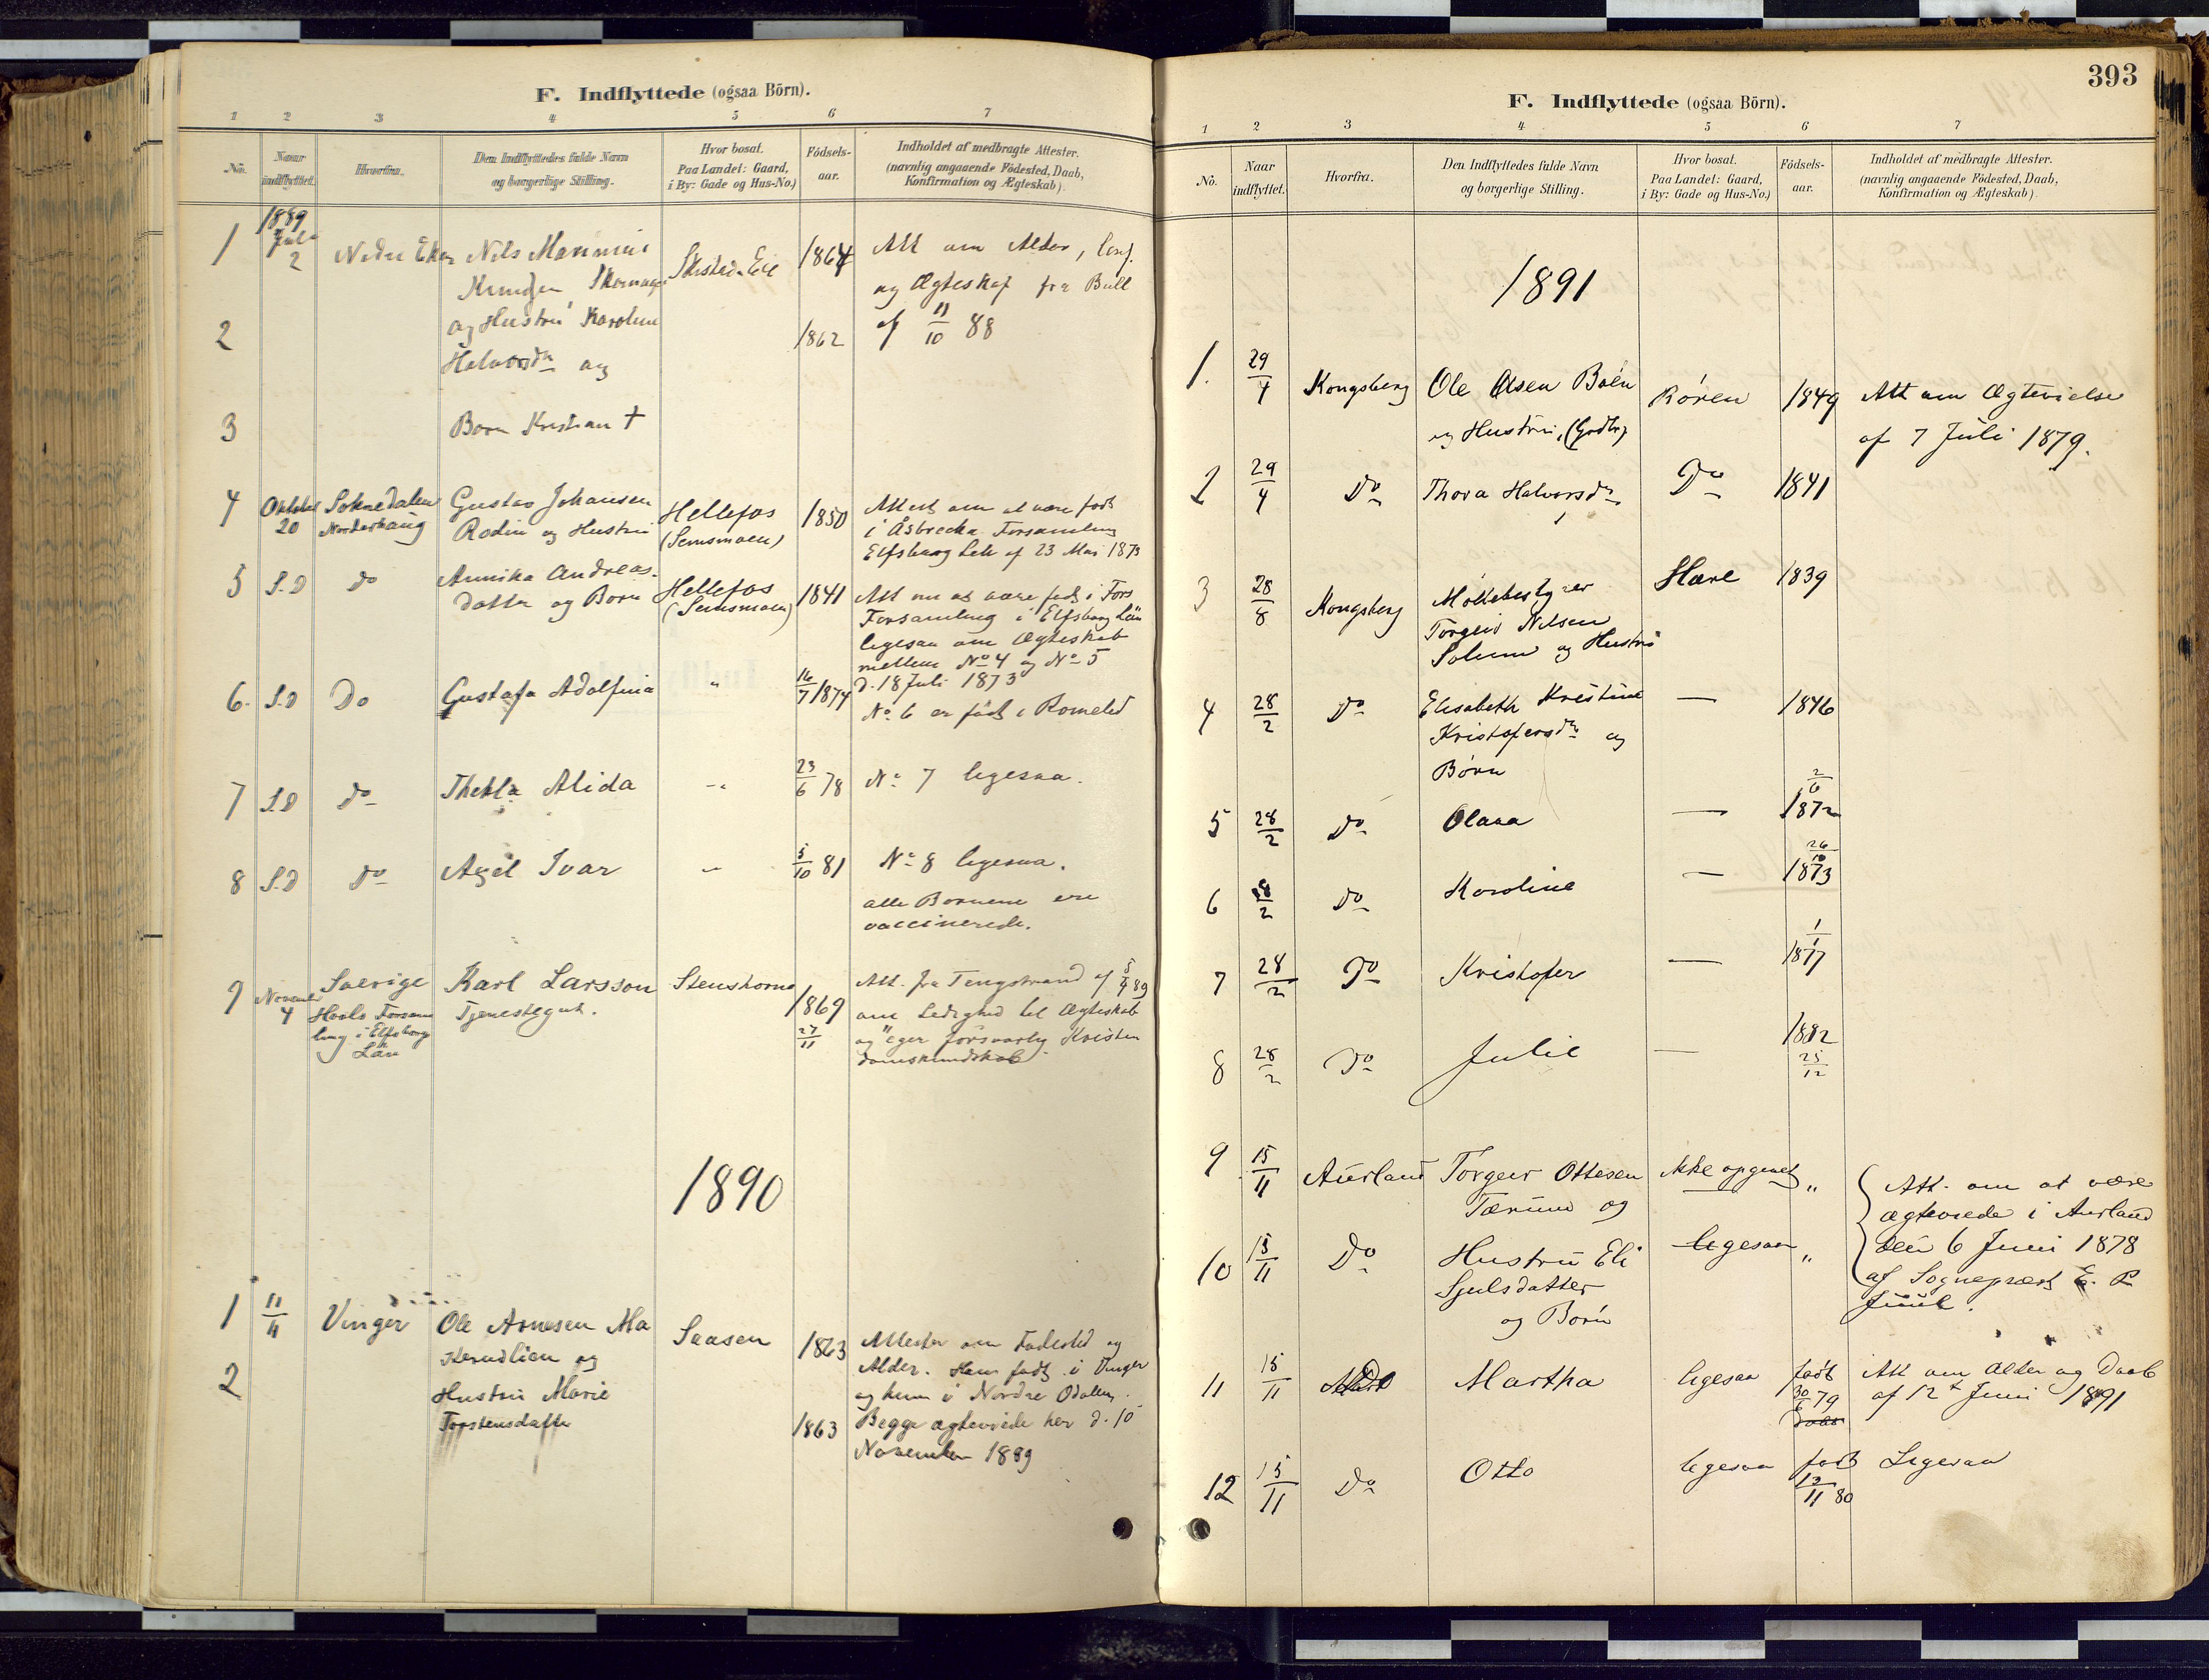 F. Indflyttede (ogsaa Börn).
1 2 3 4 5 6 7
No.
Naar indflyttet.
Hvorfra.
Den Indflyttedes fulde Navn
og borgerlige Stilling.
Hvor bosat.
Paa Landet: Gaard,
i By: Gade og Hus-No.)
Födsels-
aar.
Indholdet af medbragte Attester.
(navnlig angaaende Födested, Daab,
Konfirmation og Ægteskab).
1889
1 Juli 2 Nedre Eker Nils
og Hustru Karoline 1864 Att om Alder, Conf.
og Ægteskap fra Bull
2 Halvorsdr og 1862 af 11/10 88
3 Born Kristian †
4 Oktober 20 Soknedalen Norderhaug Gustav Johansen
Rodin og Hustru Hellefos
(Semsmoen) 1850 Attest om at være født
i Åsbrecka Forsamling
Elfsborg Leh af 23 Mai 1873
5 S.D do Annika Andreas-
datter og Born Hellefos
(Semsmoen) 1841 Att om at være født i Fors
Forsamling i Elfsborg Län
ligesaa om Ægteskab
mellem No 4 og No 5
d. 18 Juli 1873
6. S.D Do Gustafa Adolfina " 16/7 1874 No 6 er født i Romeled
7 S.D do Thekla Alida -"- 23/6 78 No 7 ligesaa.
8 S.D do Axel Ivar - 5/10 81 No 8 ligesaa.
alle Bornene ere
vaccinerede.
9 November 4 Sverige
Forsam
ling i Elfsborg
Län Karl Larsson
Tjenestegut. Stenshorne 1869
27/11 Att. fra Tengstrand af 5/9 89
om Ledighed til Ægteskab
og "eger forsvarlig Kristen
domskundskab
1890
1 11/4 Vinger Ole Arnesen Ma
kerudlien og Saasen 1863 Attester om Fødested og
Alder. Han født i Vinger
2 Hustru Marie
Torstensdatter 1863 og hun i Nordre Odalen.
Begge ægteviede her d. 10
November 1889
393
F. Indflyttede (ogsaa Börn).
1 2 3 4 5 6 7
No.
Naar
indflyttet.
Hvorfra.
Den Indflyttedes fulde Navn
og borgerlige Stilling.
Hvor bosat.
Paa Landet: Gaard,
i By: Gade og Hus-No.)
Födsels-
aar.
Indholdet af medbragte Attester.
(navnlig angaaende Födested, Daab,
Konfirmation og Ægteskab).
1891
1. 29/4 Kongsberg Ole Olsen Boén
og Hustru, Røren 1849 Att om Ægtevielse
af 7 Juli 1879.
2 29/4 Do Thora Halvorsdr Do 1841
3 28/8 Kongsberg Møllebestyrer
Torgeir Nilsen
Solum og Hustru Hære 1839
4 28/2 Do Elisabeth Kristine
Kristofersdr og
Børn — 1846
5 28/2 Do Olava — 2/6
1872
6 28/2 Do Karoline — 26/10
1873
7 28/2 Do Kristofer — 1/1
1877
8 28/2 Do Julie — 1882
25/12
9 15/11 Aurland Torgeir Ottesen
Tærum og Ikke opgivet " Att. om at være
ægteviede i Aurland
10 15/11 Do Hustru Eli
Sjulsdatter
og Born ligesaa " den 6 Juni 1878
af Sogneprest E. R
Juul.
11 15/11 Do Martha ligesaa født
30/6 79 Att om Alder og Daab
af 12t Juni 1891
12 15/11 Do Otto ligesaa født
13/11 80 Ligesaa